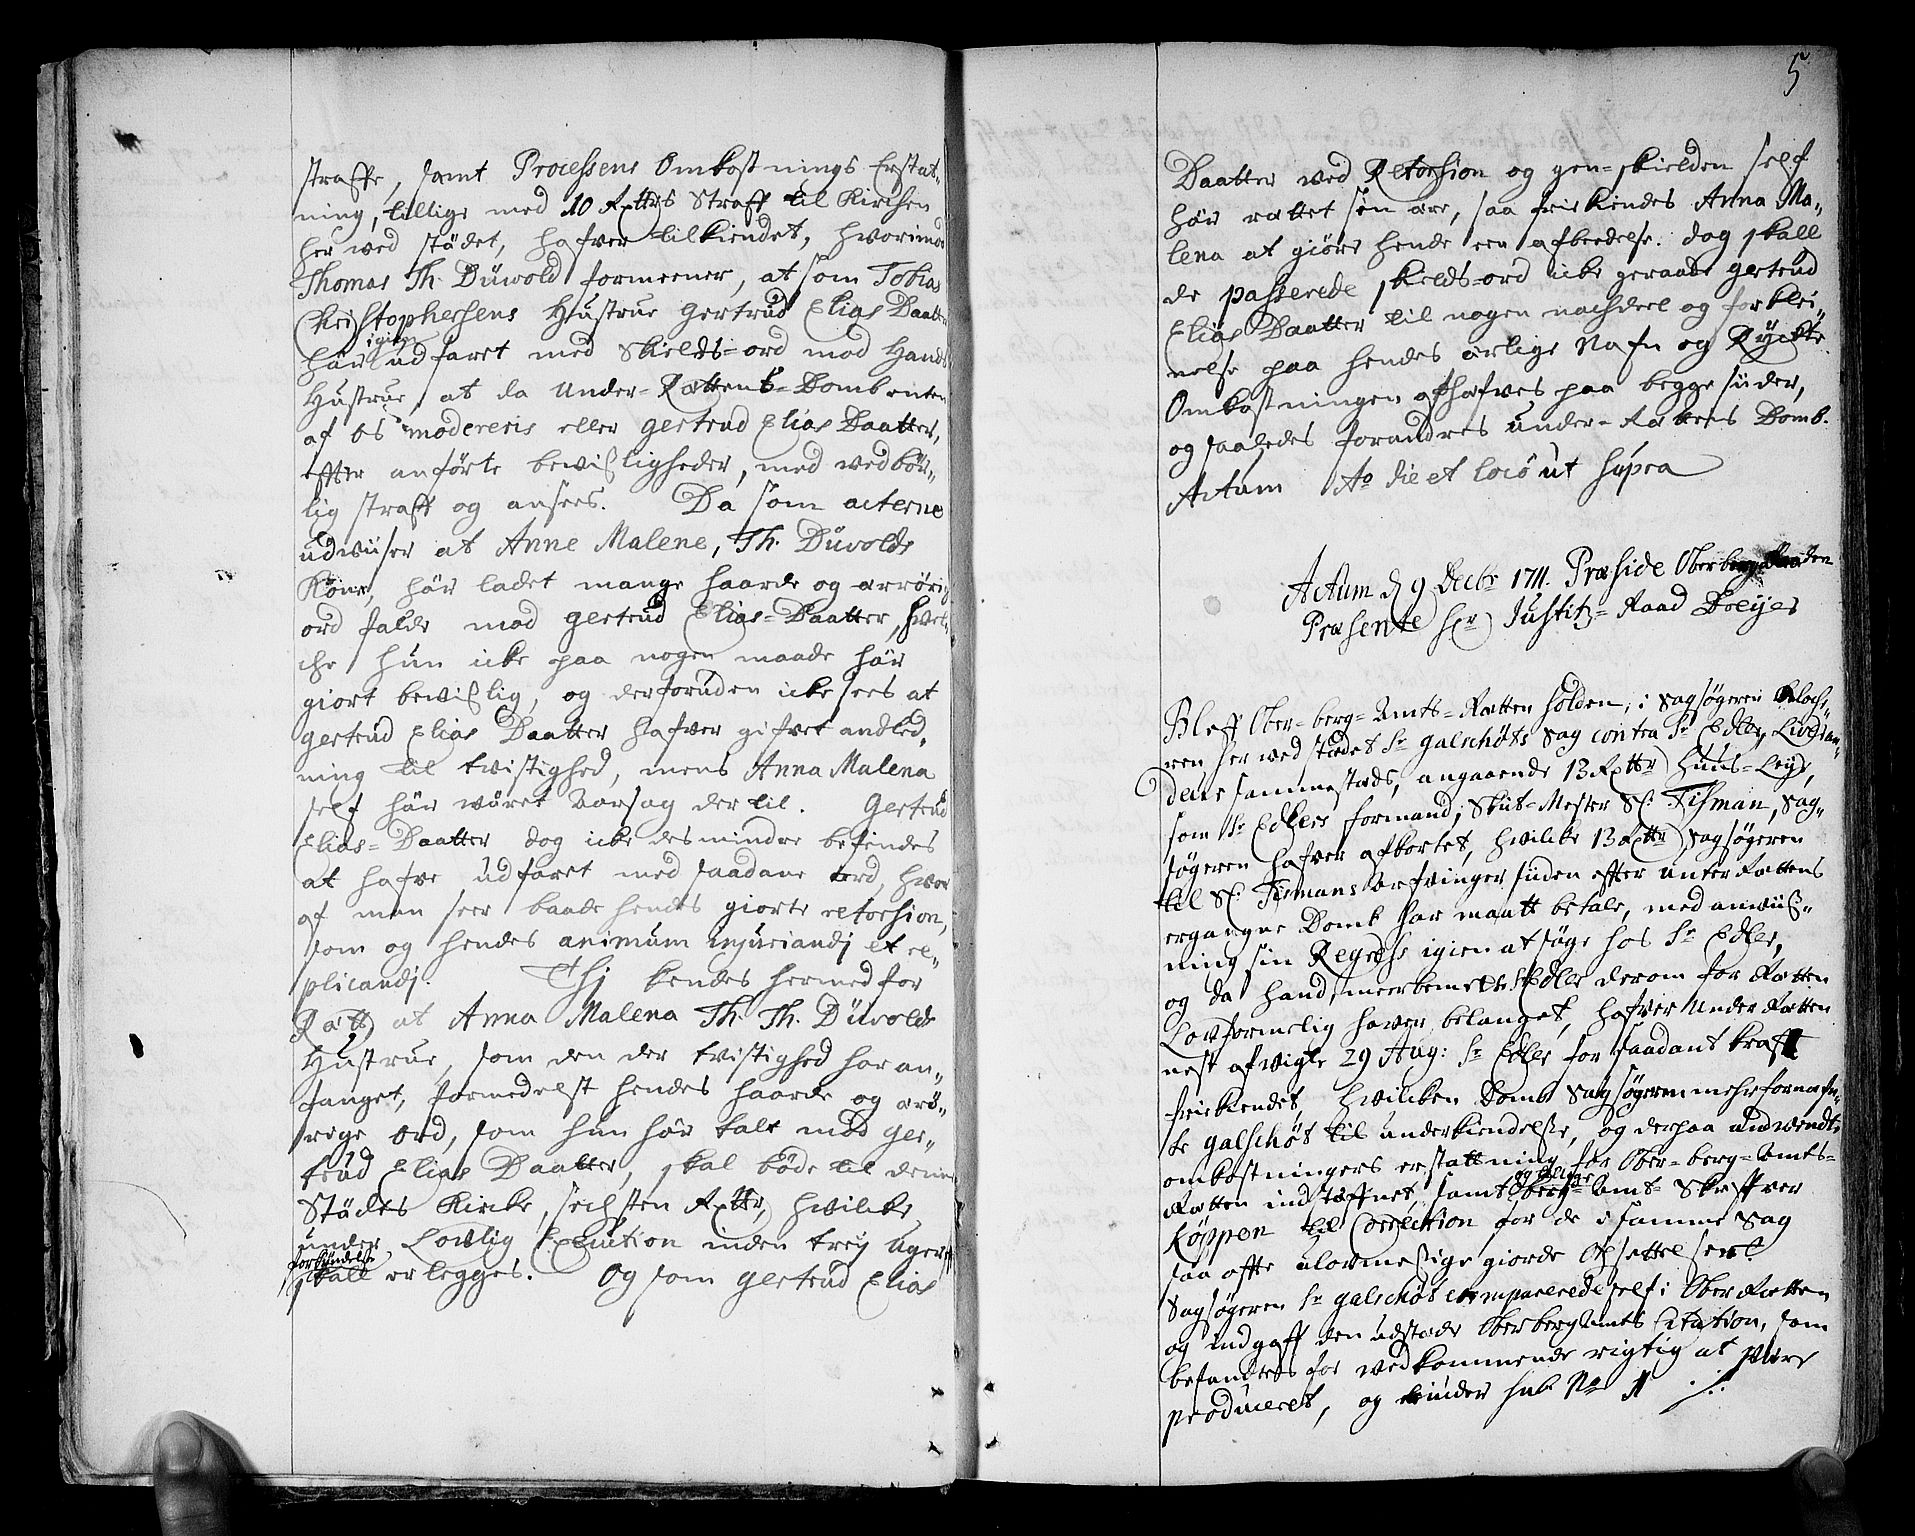 straffe, samt Processens Omkostnings Erstat„
ning, tillige med 10 Rxttrs Straff til Kirchen
her ved städet, hafver tilkiendet, hvorimod
Thomas Th. Düvold formeener, at som Tobias
Christophersens Hustrue Gertrud Elias Daatter
här igien udfaret med Skields-ord mod Hands
Hustrue, at da Under-Rættens-Domb enten
af os modereris eller Gertrud Elias Daatter,
effter anførte bevißligheder, med vedbör„
lig straff og ansees. Da som acterne
udwiiser at Anne Malene, Th. Düvolds
Kone, här ladet mange haarde og ærrørig
ord falde mod Gertrud Elias-Daatter, hvil„
che hun icke paa nogen maade här
giort bevißlig, og derforuden icke sees at
Gertrud Elias Daatter hafver gifvet anled„
ning til tvistighed, mens Anna Malena
self här wäret Aarsag der til. Gertrud
Elias-Daatter dog icke desmindre befindes
at hafve udfaret med saadane ord, hvor
af man seer baade hendes giorte retorsion,
som og hendes animum injuriandj et re„
plicandj. Thj kendes hermed for
Rætt at Anna Malena Th. Th. Düvolds
Hustrue, som den der tvistighed har an„
fanget, formedelst hendes haarde og ærö„
rige ord, som hun här talt mod Ger„
trud Elias Daatter, skal böde til denne
Städs Kircke, sechsten Rxttr, hvilcke
under Lovlig Execution inden trej uger eff
forkyndelse skall erlegges. Og som Gertrud Elias
5
Daatter ved Retorsion og gen-skielden self
här rættet sin ære, saa friekiendes Anna Ma„
lena at giöre hende een afbeedelse. dog skall
de passerede skields-ord icke geraade Gertrud
Elias Daatter til nogen nachdeel og forklei„
nelse paa hendes ærlige Nafn og Rÿckte
Omkostningen ophæfves paa begge siider,
og saaledes forandres under-Rættens Domb.
Actum Ao die et loco ut supra
Actum d 9 Decbr 1711. Præside Oberberg Raaden
Præsente Hr Justitz-Raad Doeijes
Bleff Ober-berg-Amts-Rætten holden, i Sagsøgeren Klock„
ren her ved stædet Sr Galschøts Sag contra Sr Edler, Liveran„
deur sammestæds, angaaende 13 Rxttr Huus-Leije,
som Sr Edlers formand, Skiit-Mester Sl. Tisman, Sag„
søgeren hafver afkortet, hvilcke 13 Rxttr Sagsøgeren
til Sl. Tismans Arfvinger siiden effter Unter Rættens
ergangne Domb har maatt betale, med anwiiß„
ning sin Regress igien at søge hos Sr Edler,
og da hand meerbemelte Sr Edler derom for Rætten
Lovformelig haver belanget, hafver Under Rætten
nest afvigte 29 Aug: Sr Edler for saadant kraff
friekiendet, hvilcken Domb Sagsøgeren mehrfornæfn„
te Galschøt til underkiendelse, og derpaa anwendte
omkostningers erstattning for Ober-berg-Amts-
Rætten indstæffnet, samt og tillige Berg-Amt-Skriffver
Köppen til Correction for de i samme Sag
saa offte ulovmeßige giorde Opsettelser.
Sagsøgeren Sr Galschøt comparerede self i Ober Rætten
og indgaff den udstæde Oberberg Amts Citation, som
befandtes for vedkommende rigtig at være
produceret, og under sub No 1